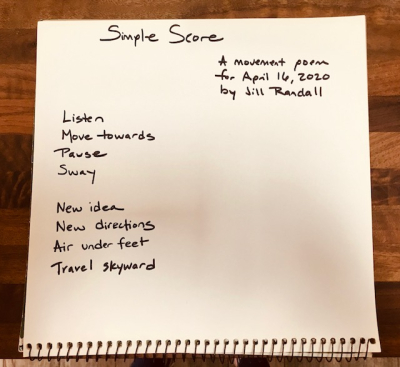 Simple Score
A movement poem
for April 16, 2020
by Jill Randall
Listen
Move towards
Pause
Sway
New idea
New directions
Air under feet
Travel skyward